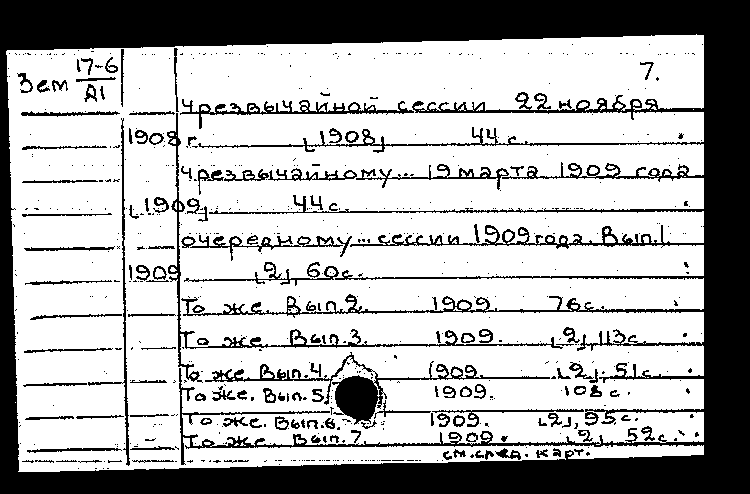 Зем 17-6/А1
7.
Чрезвычайной сессии 22 ноября
1908 г. [1908] 44 с.
Чрезвычайному... 19 марта 1909 года
[1909] 44 с.
очередному... сессии 1909 года. Вып.1.
1909. [2], 60с.
То же. Вып.2. 1909. 76с.
То же. Вып.3. 1909. [2], 113с.
То же. Вып.4. 1909. [2], 51с.
То же. Вып.5. 1909. 108с.
То же. Вып.6. 1909. [2], 95с.
То же. Вып.7. 1909. [2], 52с.
см. след. карт.